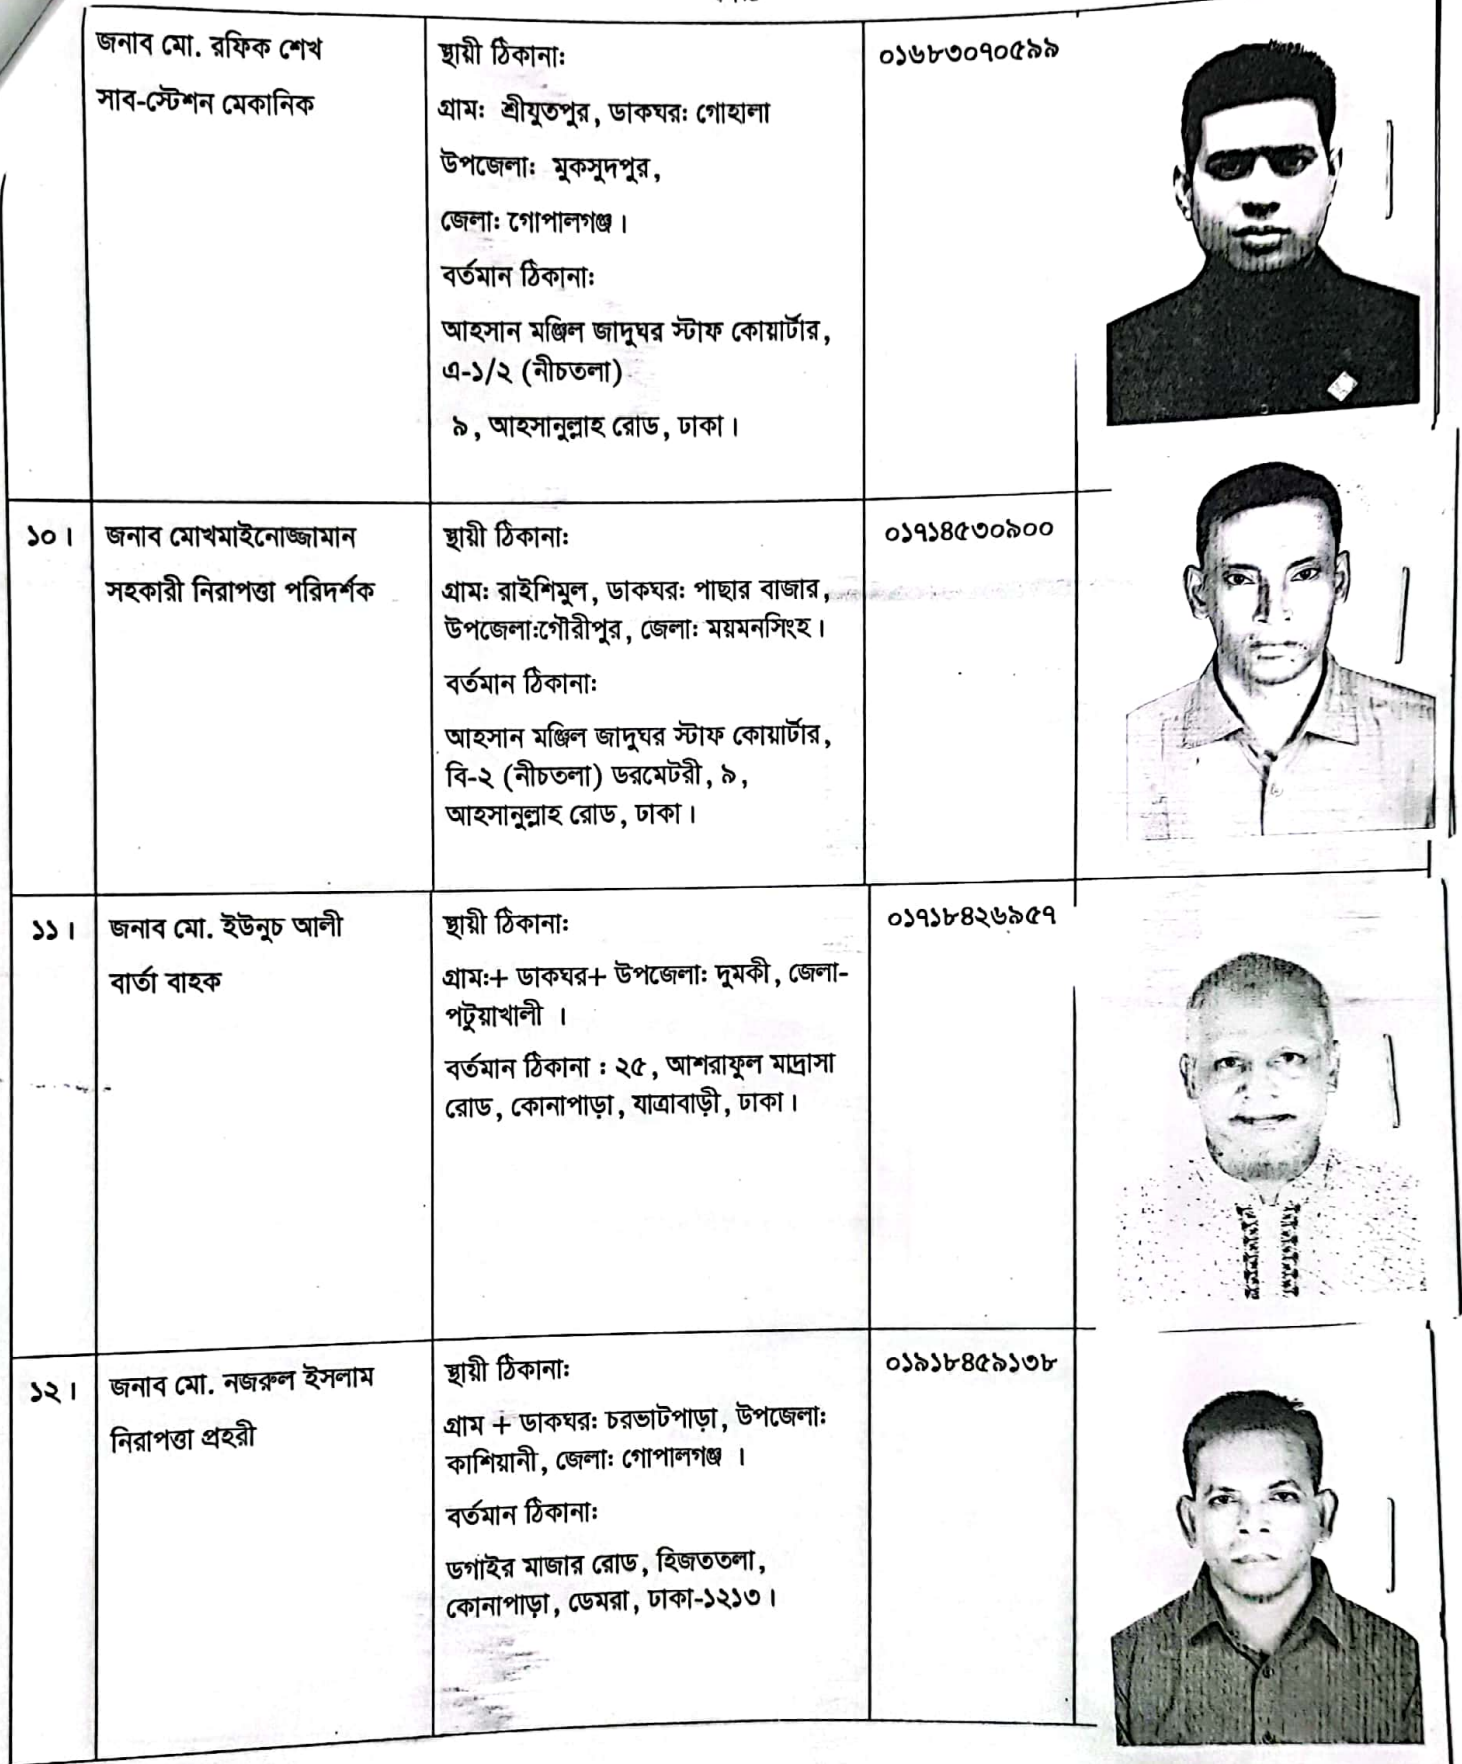 জনাব মো. রফিক শেখ
সাব-স্টেশন মেকানিক
স্থায়ী ঠিকানা:
গ্রাম: শ্রীযুতপুর, ডাকঘর: গোহালা
উপজেলা: মুকসুদপুর,
জেলা: গোপালগঞ্জ।
বর্তমান ঠিকানা:
আহসান মঞ্জিল জাদুঘর স্টাফ কোয়ার্টার,
এ-১/২ (নীচতলা)
৯, আহসানুল্লাহ রোড, ঢাকা।
০১৬৮৩০৭০৫৯৯
১০।
জনাব মোখমাইনোজ্জামান
সহকারী নিরাপত্তা পরিদর্শক
স্থায়ী ঠিকানা:
গ্রাম: রাইশিমুল, ডাকঘর: পাছার বাজার,
উপজেলা:গৌরীপুর, জেলা: ময়মনসিংহ।
বর্তমান ঠিকানা:
আহসান মঞ্জিল জাদুঘর স্টাফ কোয়ার্টার,
বি-২ (নীচতলা) ডরমেটরী, ৯,
আহসানুল্লাহ রোড, ঢাকা।
০১৭১৪৫৩০৯০০
১১।
জনাব মো. ইউনুচ আলী
বার্তা বাহক
স্থায়ী ঠিকানা:
গ্রাম:+ ডাকঘর+ উপজেলা: দুমকী, জেলা-
পটুয়াখালী ।
বর্তমান ঠিকানা : ২৫, আশরাফুল মাদ্রাসা
রোড, কোনাপাড়া, যাত্রাবাড়ী, ঢাকা।
০১৭১৮৪২৬৯৫৭
১২।
জনাব মো. নজরুল ইসলাম
নিরাপত্তা প্রহরী
স্থায়ী ঠিকানা:
গ্রাম + ডাকঘর: চরভাটপাড়া, উপজেলা:
কাশিয়ানী, জেলা: গোপালগঞ্জ ।
বর্তমান ঠিকানা:
ডগাইর মাজার রোড, হিজততলা,
কোনাপাড়া, ডেমরা, ঢাকা-১২১৩।
০১৯১৮৪৫৯১৩৮